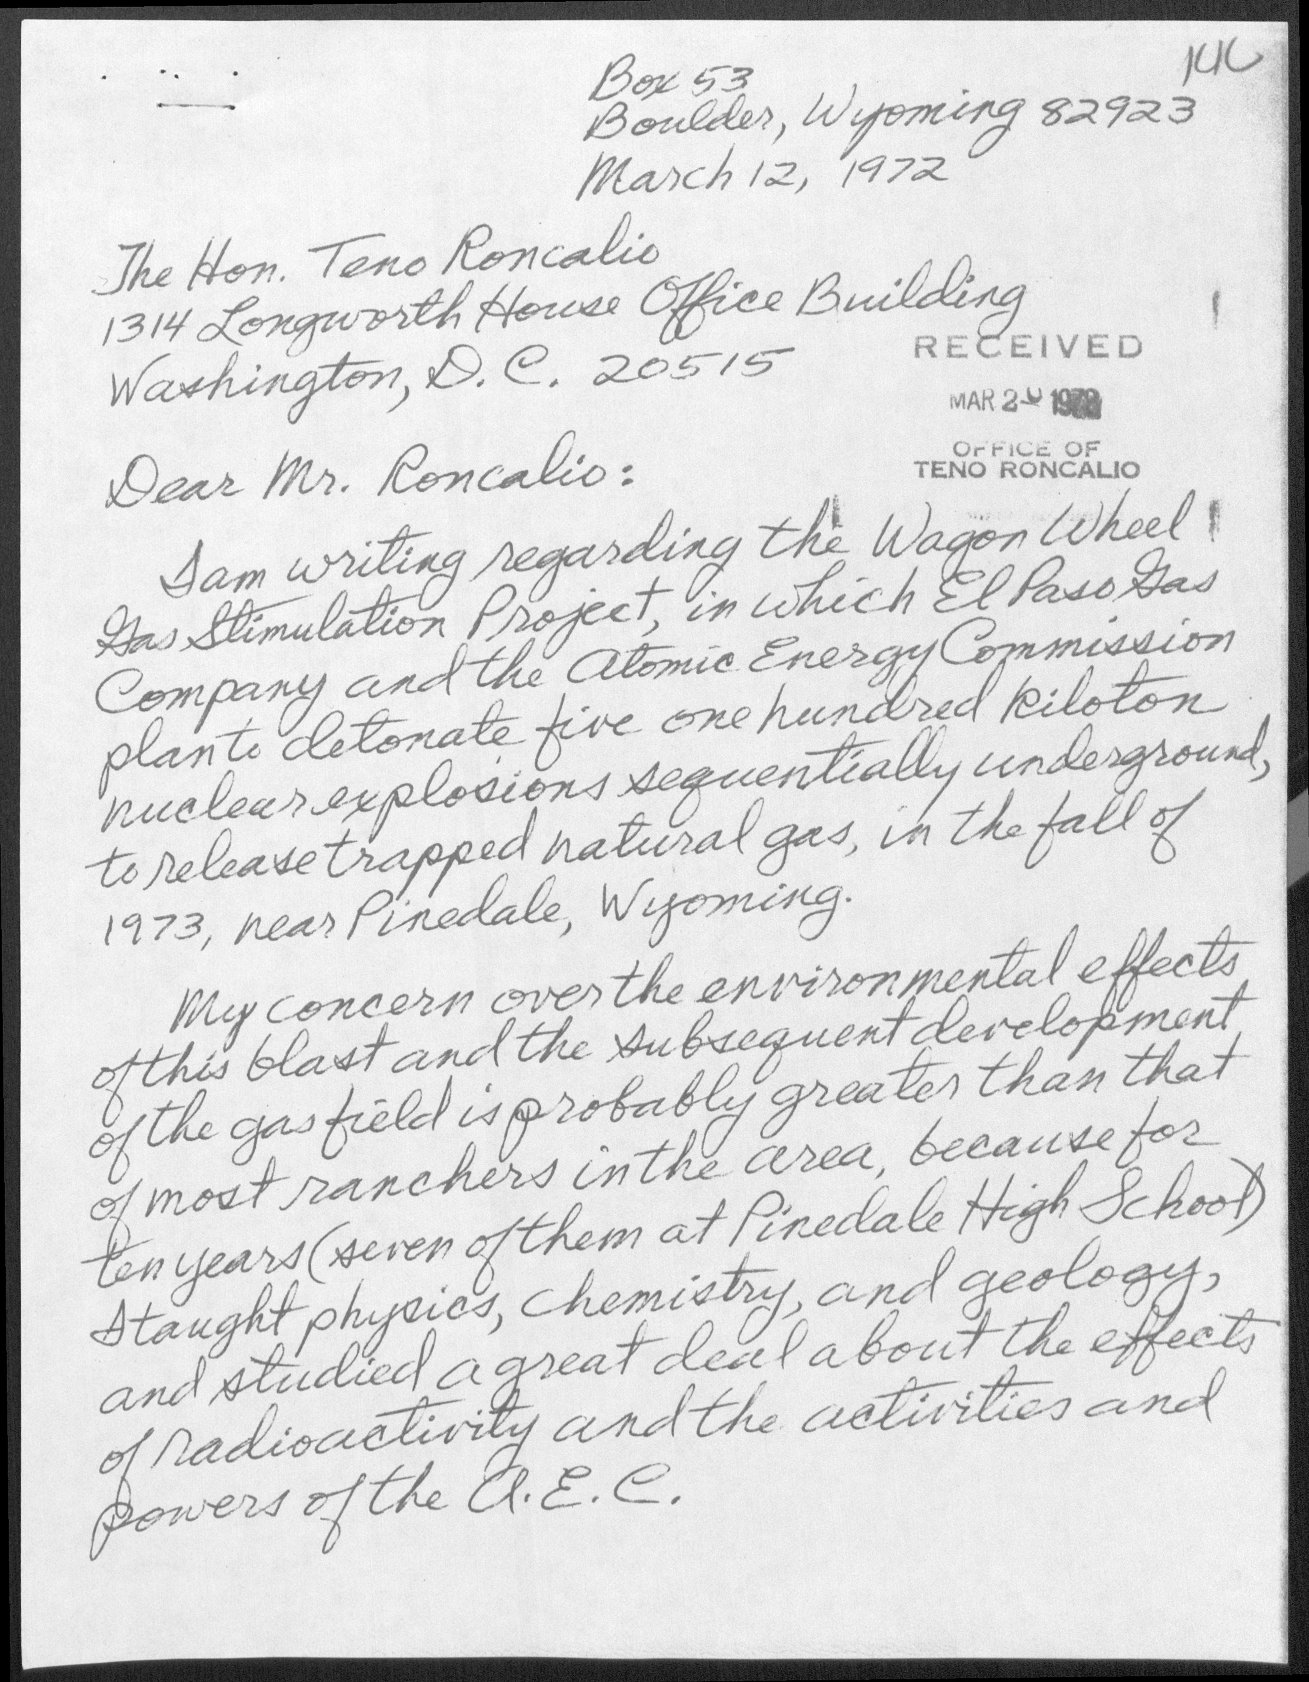 Box 53
Boulder, Wyoming 82923
March 12, 1972
The Hon. Teno Roncalio
1314 Longworth House Office Building
Washington, D.C. 20515
RECEIVED
MAR 20 1972
OFFICE OF
TENO RONCALIO
Dear Mr. Roncalio:
I am writing regarding the Wagon Wheel
Gas Stimulation Project, in which El Paso Gas
Company and the Atomic Energy Commission
plan to detonate five one hundred kiloton
nuclear explosions sequentially underground,
to release trapped natural gas, in the fall of
1973, near Pinedale, Wyoming.
My concern over the environmental effects
of this blast and the subsequent development
of the gas field is probably greater than that
of most ranchers in the area, because for
ten years (seven of them at Pinedale High School)
I taught physics, chemistry, and geology,
and studied a great deal about the effects
of radioactivity and the activities and
powers of the A.E.C.